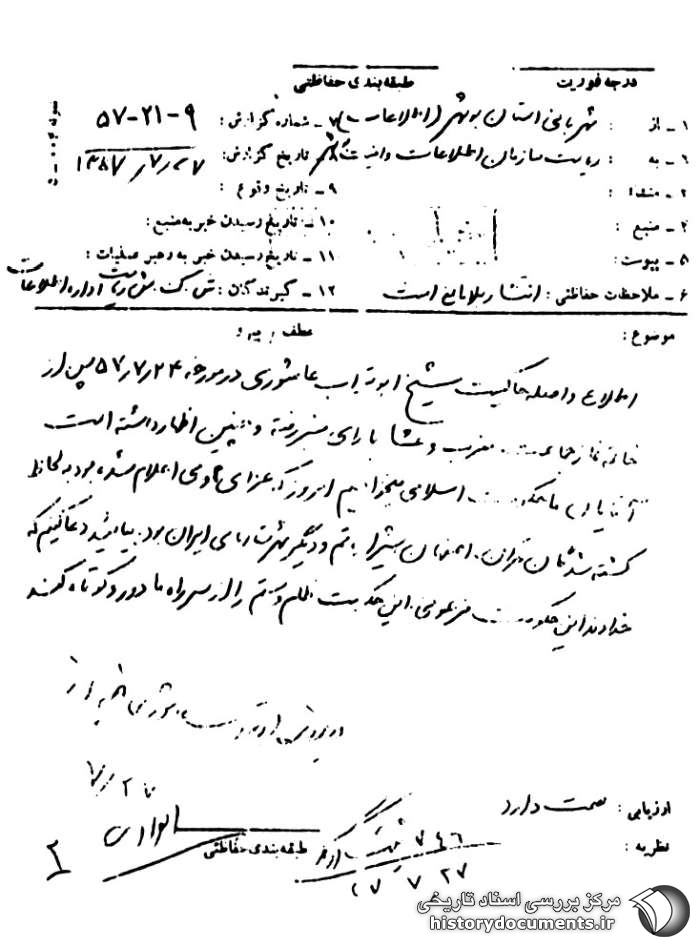 درجه فوریت
طبقه‌بندی حفاظتی
۱ ـ از : شهربانی استان بوشهر (اطلاعات)
۷ ـ شماره گزارش : ۹-۲۱-۵۷
به : ریاست سازمان اطلاعات و امنیت
تاریخ گزارش :
منشاء :
۹ ـ تاریخ وقوع :
۴ ـ منبع :
۱۰ ـ تاریخ رسیدن خبر به منبع :
۵ ـ پیوست :
۱۱ ـ تاریخ رسیدن خبر به رهبر عملیات :
۶ ـ ملاحظات حفاظتی : انتشار بلامانع است
۱۲ ـ گیرندگان : اداره اطلاعات
موضوع :
عطف / پیرو
اطلاع واصله حاکیست شیخ ابوتراب عاشوری در مورخه ۵۷٫۷٫۲۴ پس از
خاتمه نماز جماعت مغرب و عشا بالای منبر رفته و چنین اظهار داشته است
آقایان ما حکومت اسلامی میخواهیم امروز که عزای عمومی اعلام شده بود به لحاظ
کشته شدگان تهران، اصفهان شیراز قم و دیگر شهرستانهای ایران بود بیائید دعا کنیم که
خداوند این حکومت فرعونی این حکومت ظلم و ستم را از سر راه ما دور و کوتاه کند
ارزیابی : صحت دارد
نظریه :
طبقه‌بندی حفاظتی
۷۴۶
۲۷ ۷
مرکز بررسی اسناد تاریخی
historydocuments.ir